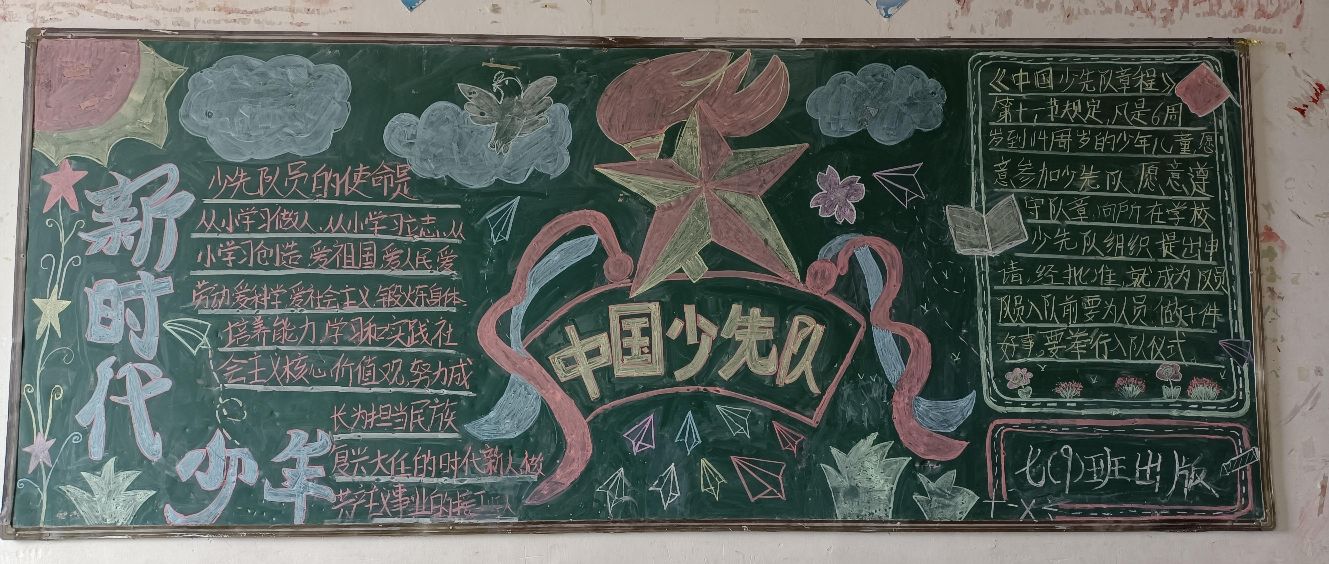 新时代
少年
少先队员的使命是
从小学习做人、从小学习立志、从
小学习创造 爱祖国 爱人民 爱
劳动 爱科学 爱社会主义 锻炼身体
培养能力 学习和实践社
会主义核心价值观,努力成
长为担当民族
复兴大任的时代新人做
共产主义事业的接
中国少先队
《中国少先队章程》
第十一节规定,凡是6周
岁到14周岁的少年儿童愿
意参加少先队,愿意遵
守队章,向所在学校
少先队组织提出申
请,经批准,就成为队员
队员入队前要为人民做一件
好事,要举行入队仪式。
七(9)班出版